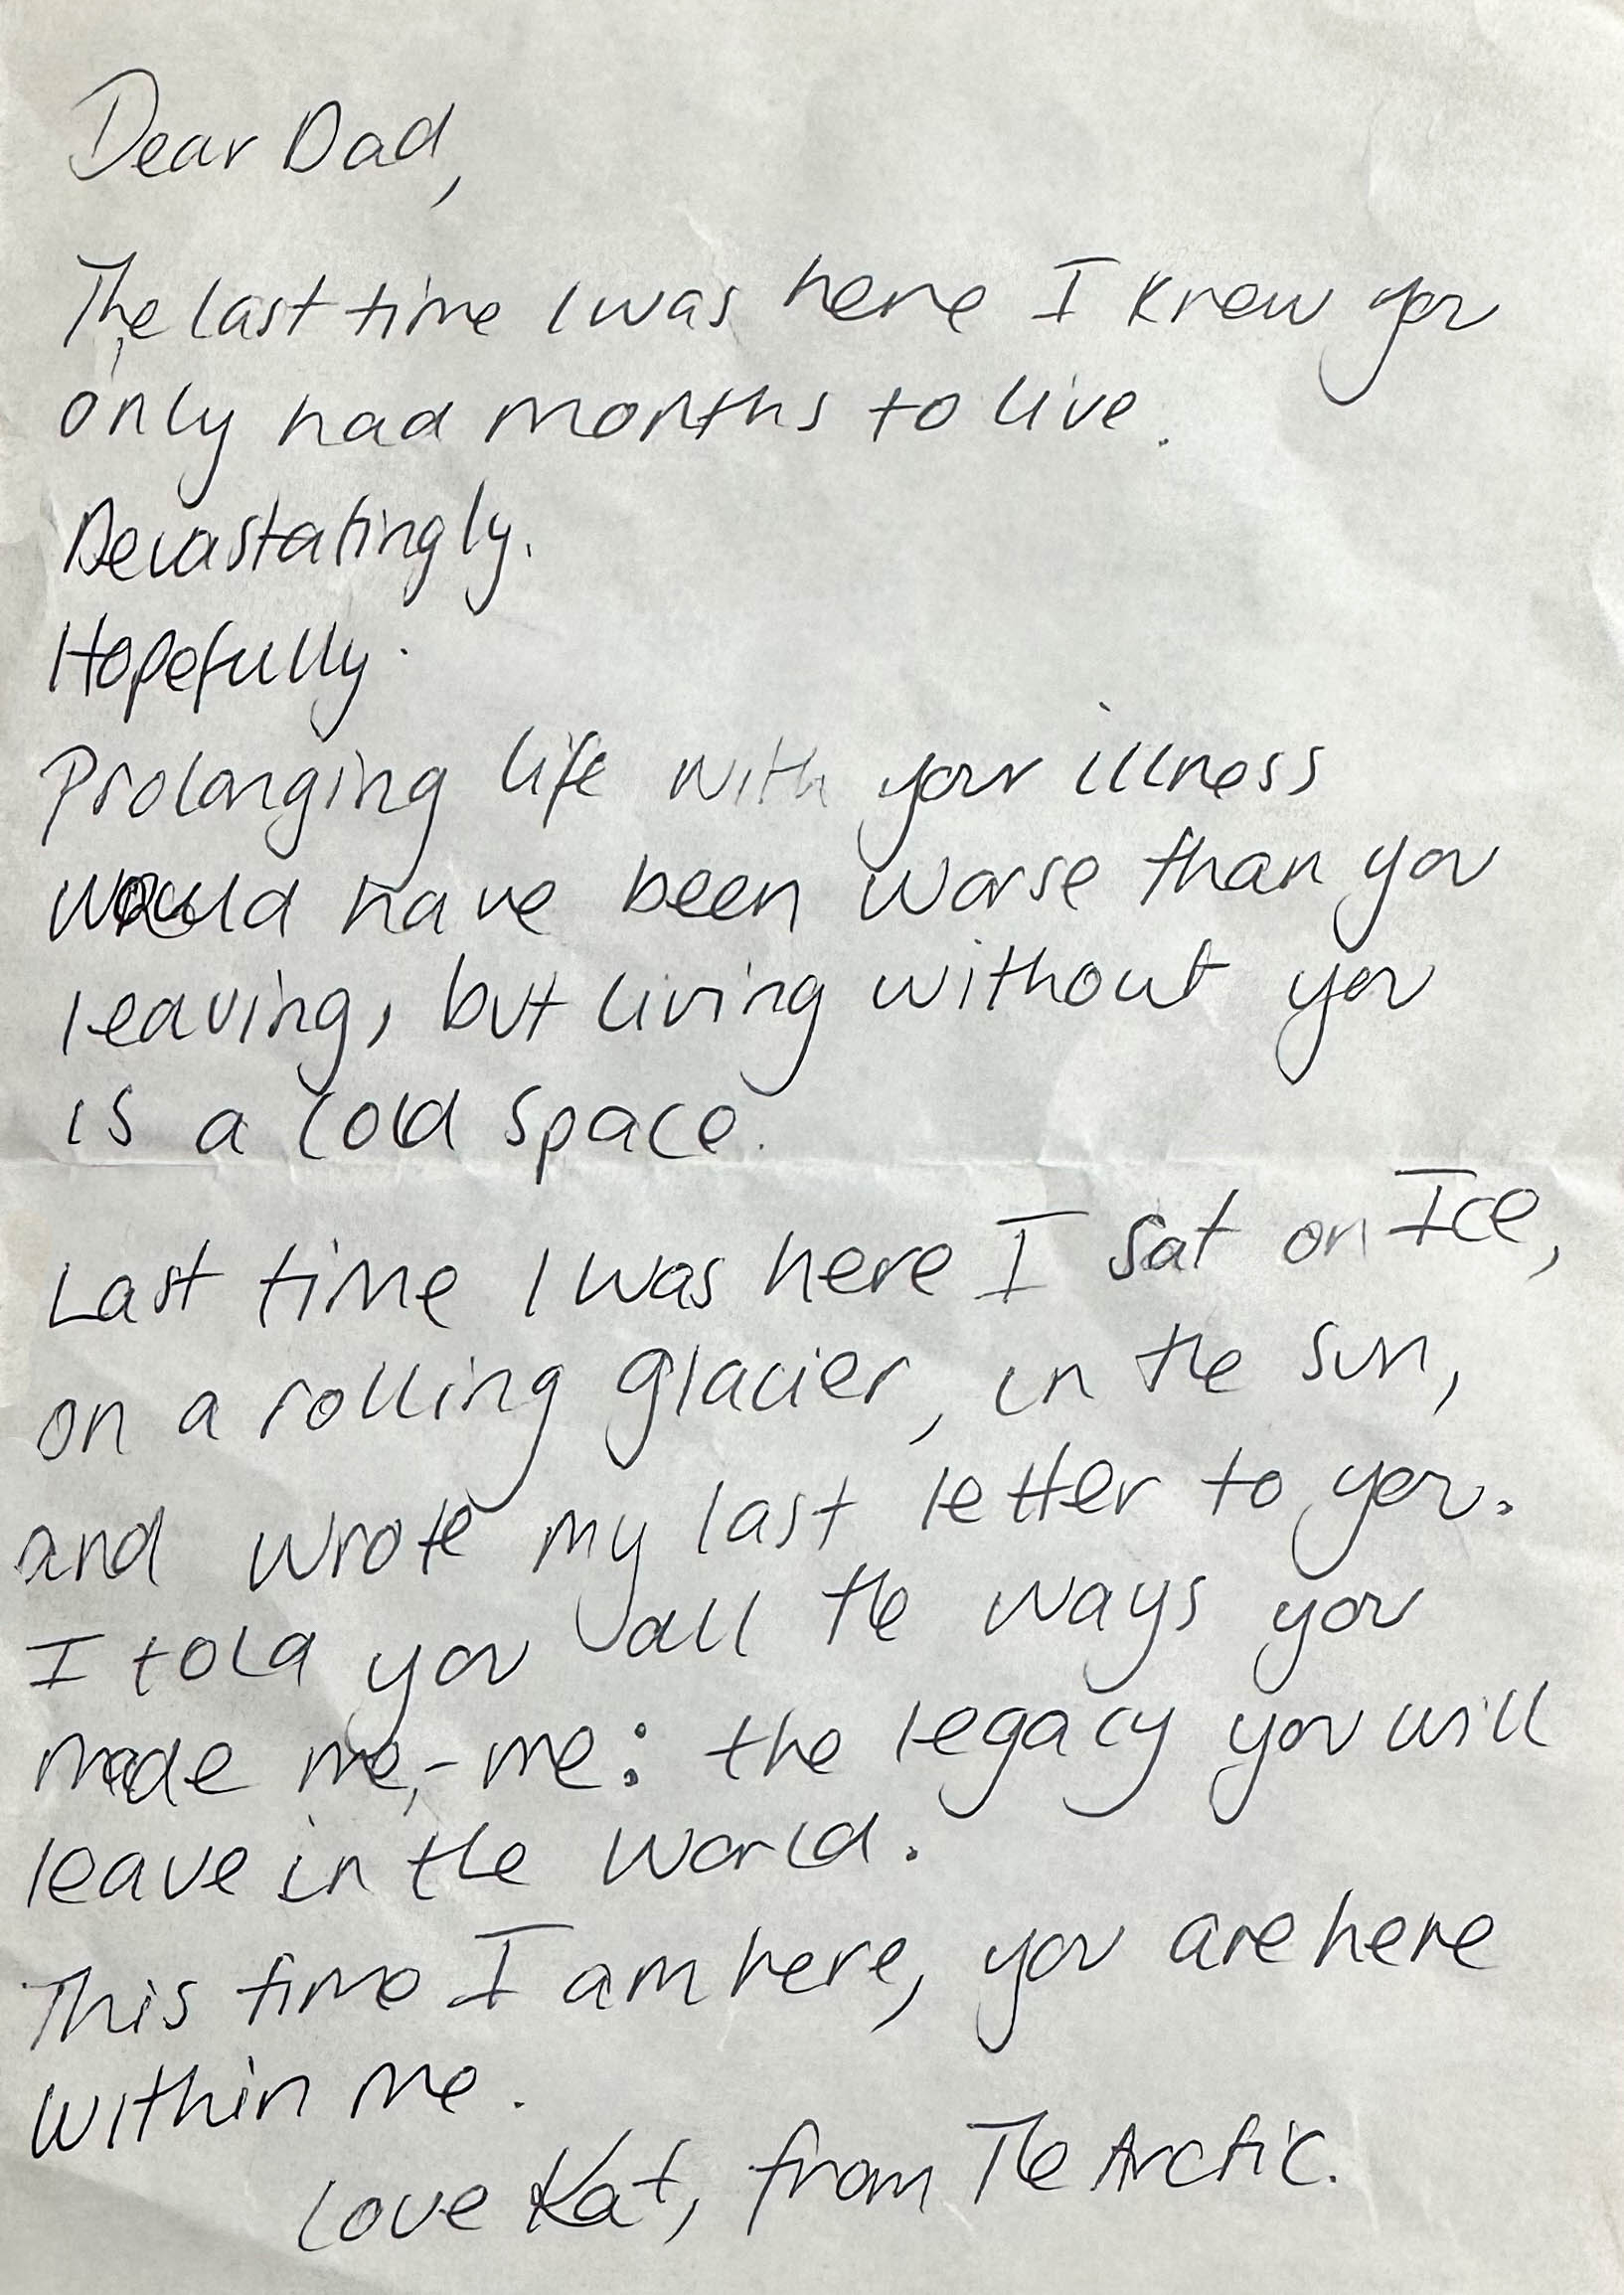 Dear Dad,
The last time I was here I knew you
only had months to live.
Devastatingly.
Hopefully.
Prolonging life with your illness
would have been worse than you
leaving, but living without you
is a cold space.
Last time I was here I sat on Ice,
on a rolling glacier, in the sun,
and wrote my last letter to you.
I told you all the ways you
made me,-me: the legacy you will
leave in the world.
This time I am here, you are here
within me.
Love Kat, from The Arctic.